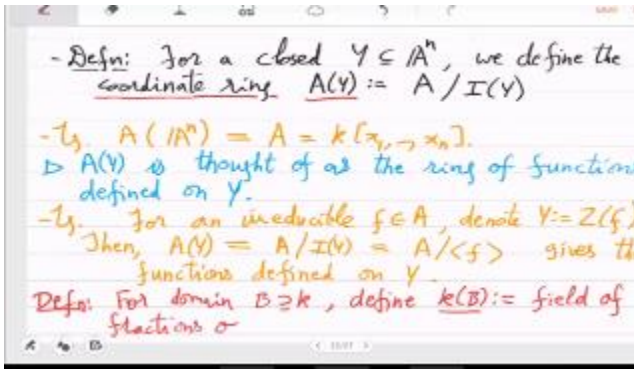 - Defn: For a closed Y ⊆ 𝔸ⁿ, we define the
coordinate ring A(Y) := A / I(Y)
- Eg. A(𝔸ⁿ) = A = k[x₁, ⋯, xₙ].
▷ A(Y) is thought of as the ring of function
defined on Y.
- Eg. For an irreducible f ∈ A, denote Y := Z(f)
Then, A(Y) = A/I(Y) = A/<f> gives th
functions defined on Y.
Defn: For domain B ⊇ k, define k(B) := field of
fractions o